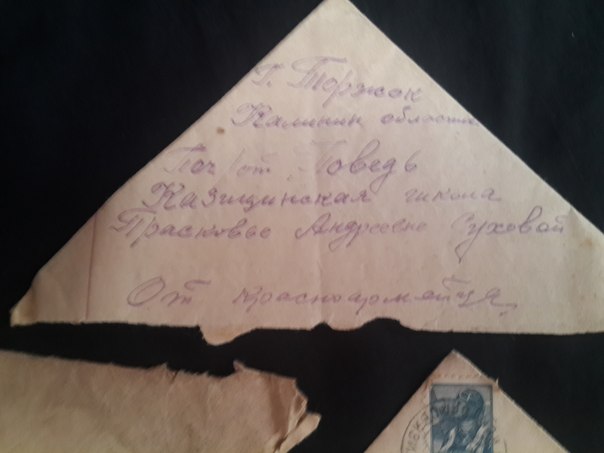 г. Торжок
Калинин области
Поч/от. Поведь
Казицинская школа
Прасковье Андреевне Суховой
От красноармейца